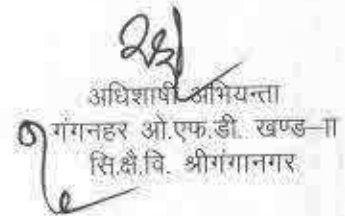 अधिशाषी अभियन्ता
गंगनहर ओ.एफ.डी. खण्ड–II
सि.क्षै.वि. श्रीगंगानगर